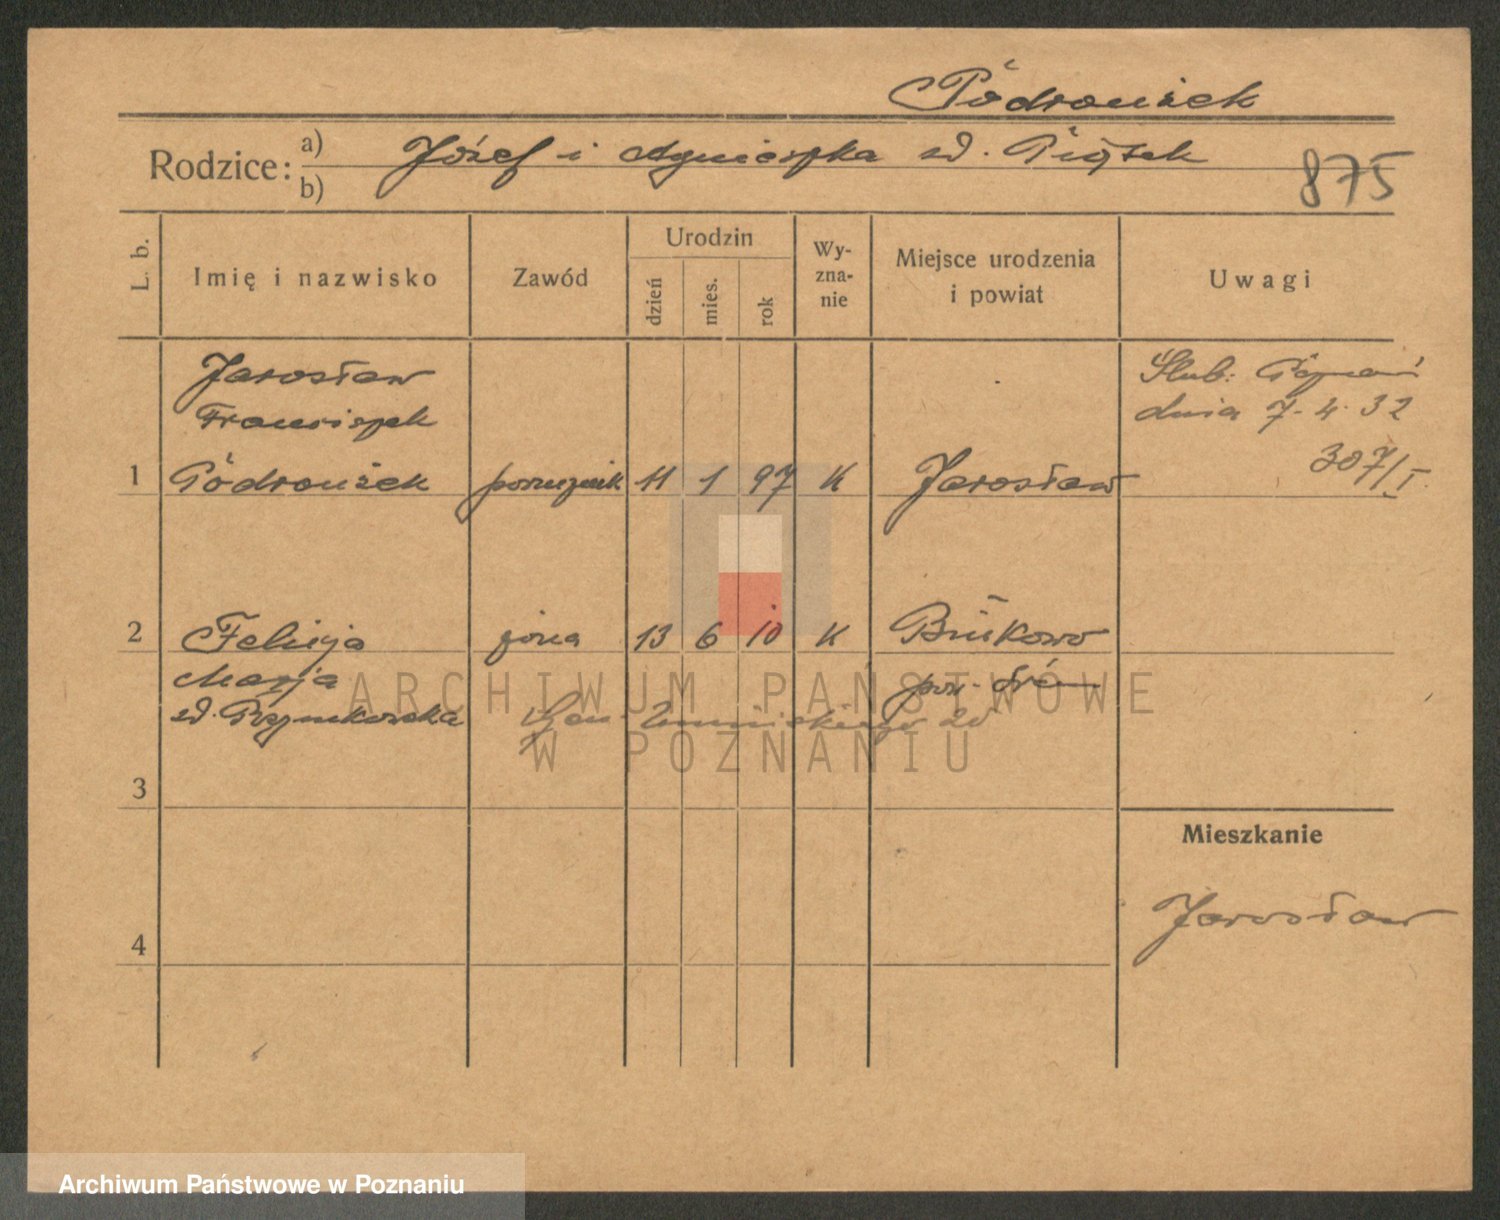 Pódroużek
Rodzice: a) Józef i Agnieszka zd. Piątek
b)
875
L. b.
Imię i nazwisko
Zawód
Urodzin
dzień
mies.
rok
Wy-
zna-
nie
Miejsce urodzenia
i powiat
Uwagi
Jarosław
Franciszek
1 Pódroużek porucznik 11 1 97 K Jarosław
Ślub: Poznań
dnia 7-4-32
307/I.
2 Felicja żona 13 6 10 K
Marja pow.
zd. 20
ARCHIWUM PAŃSTWOWE
W POZNANIU
3
Mieszkanie
Jarosław
4
Archiwum Państwowe w Poznaniu